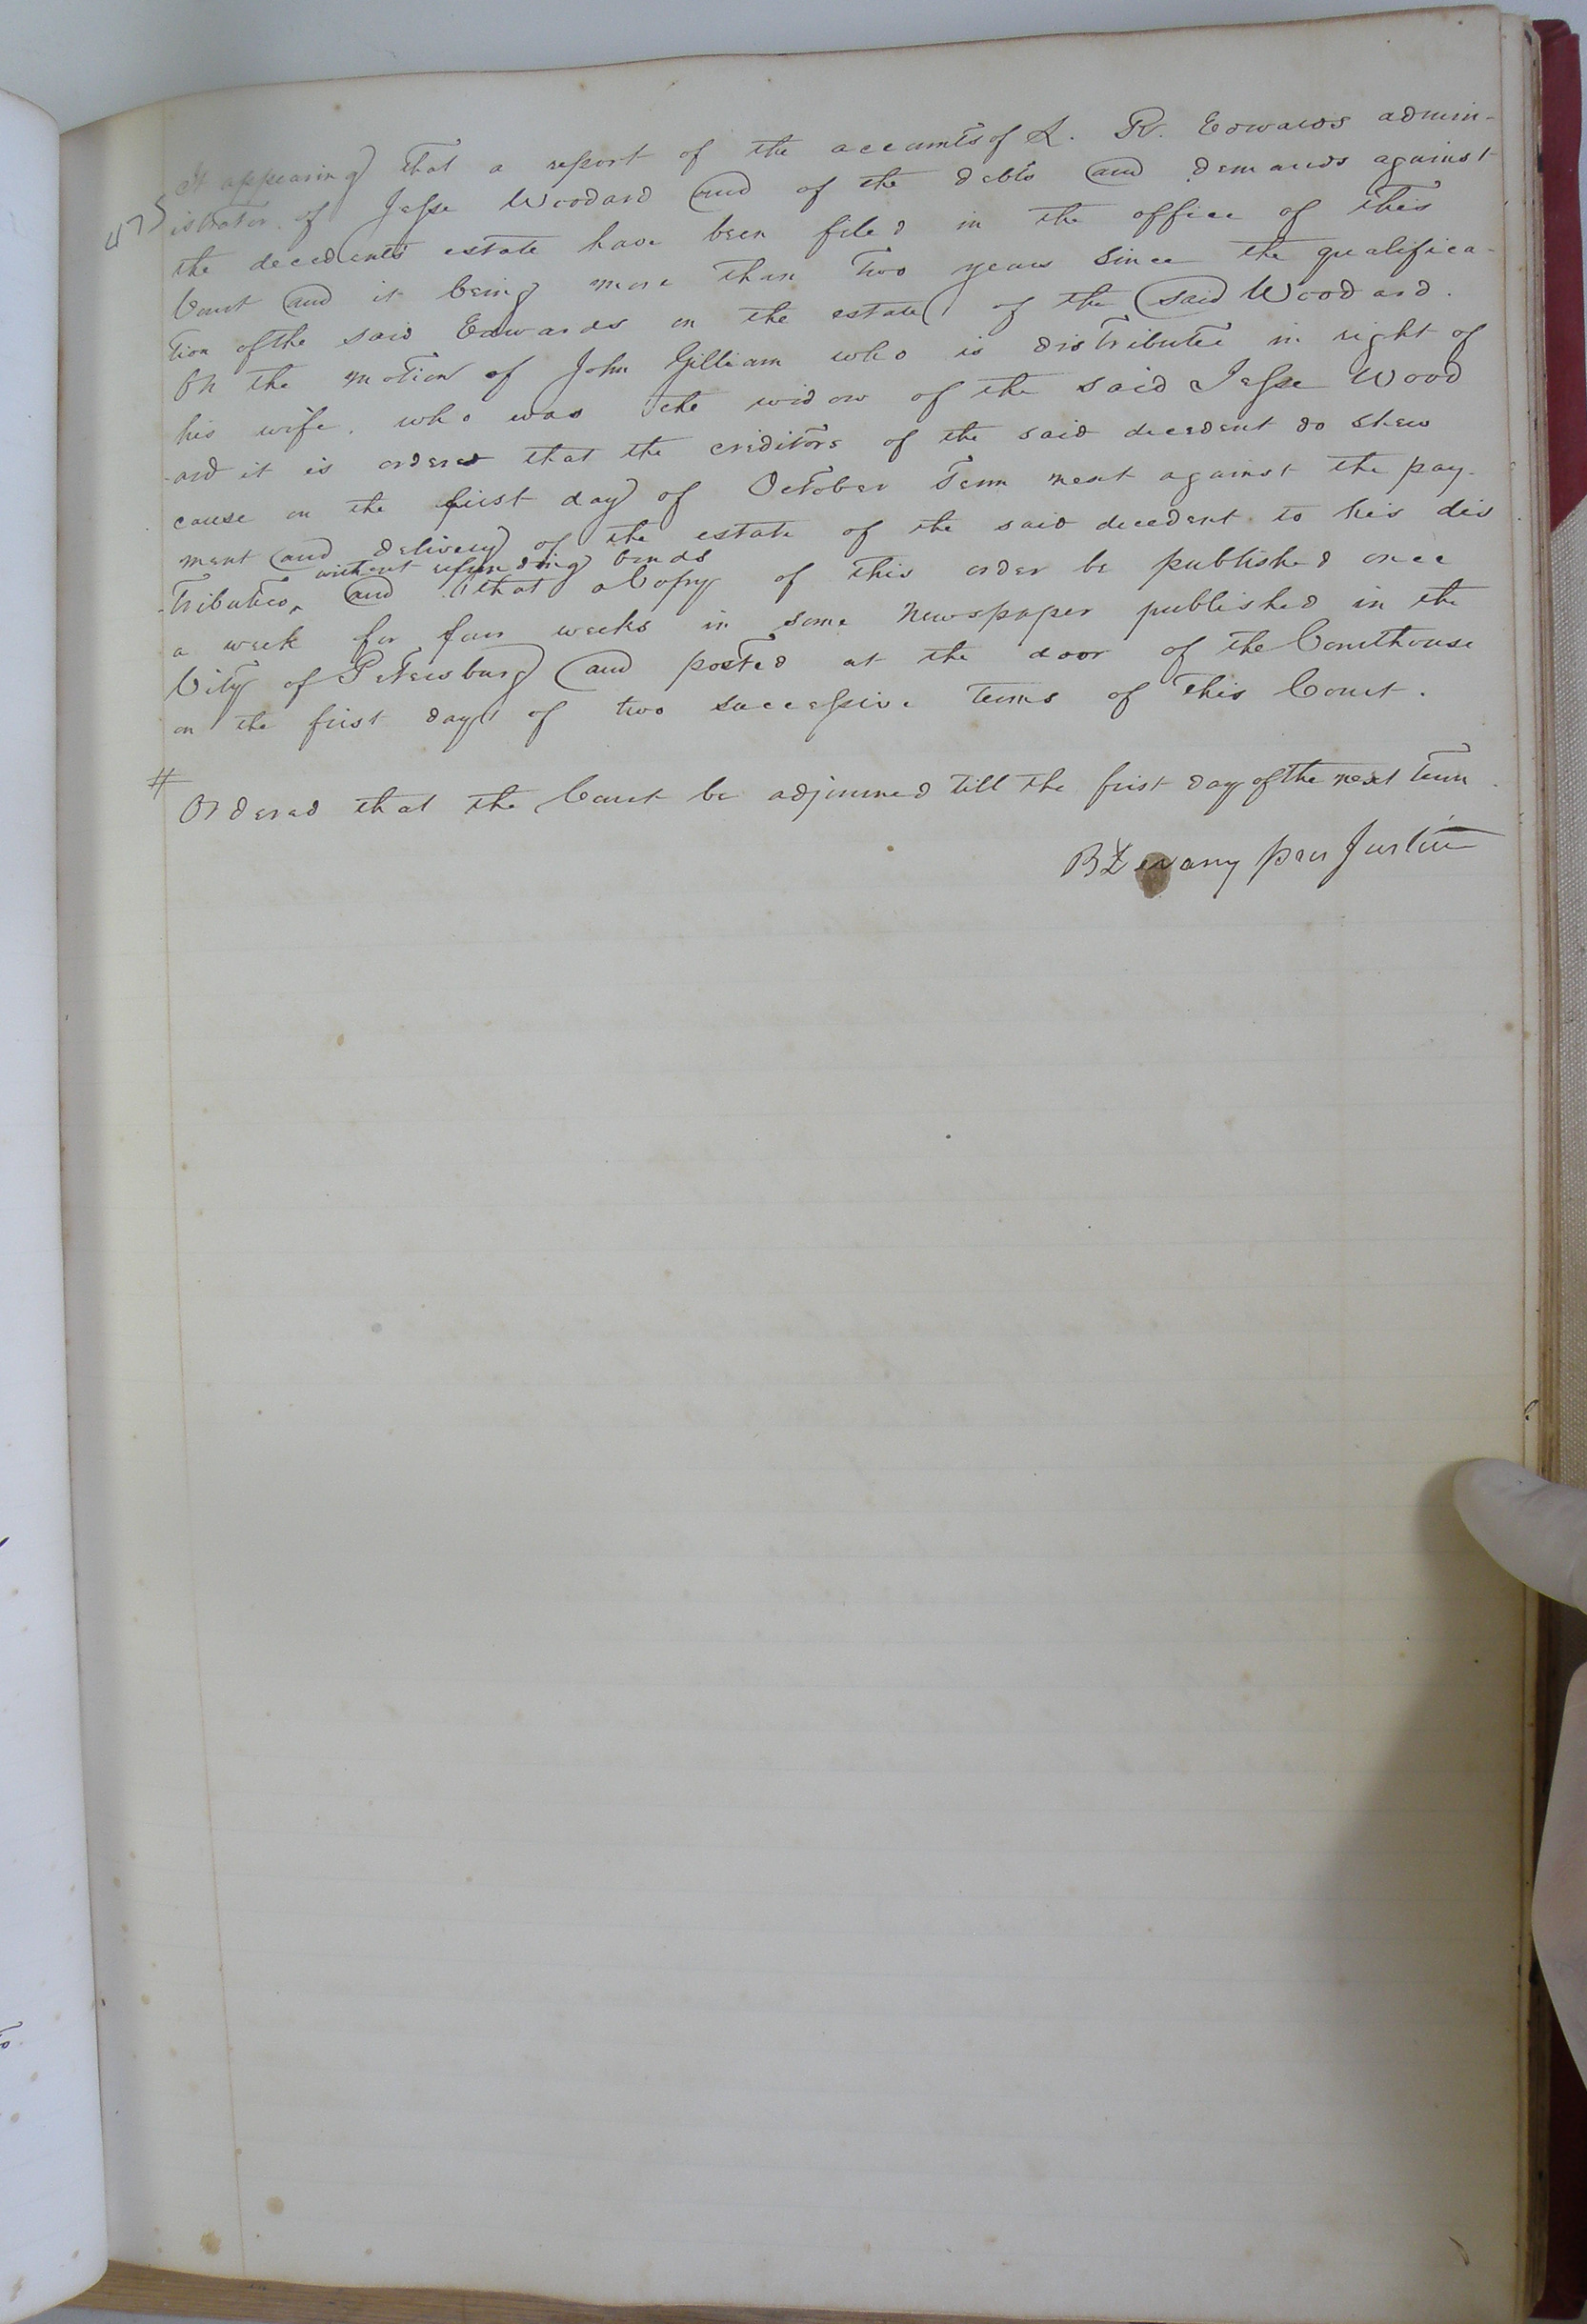 It appearing that a report of the accounts of L. R. Edwards admin-
istrator of Jesse Woodard and of the debts and demands against
the decedents estate have been filed in the office of this
Court and it being more than two years since the qualifica-
tion of the said Edwards on the estate of the said Woodard.
On the motion of John Gilliam who is distributee in right of
his wife, who was the widow of the said Jesse Wood
-ard it is ordered that the creditors of the said decedent do shew
cause on the first day of October Term next against the pay-
ment and delivery of the estate of the said decedent to his dis
without refunding bonds
-tributees, and that a Copy of this order be published once
a week for four weeks in some Newspaper published in the
City of Petersburg and posted at the door of the Courthouse
on the first days of two successive terms of this Court.
#
Ordered that the Court be adjourned till the first day of the next Term.